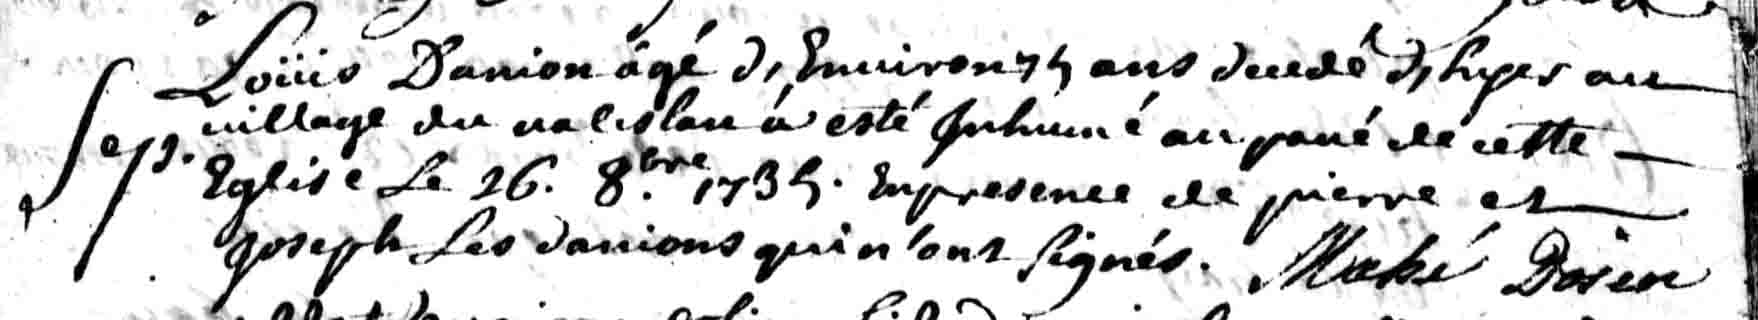 Loüis Danion âgé d'Enuiron 75 ans decedé d'hyer au
village du ualislan à esté Inhumé au paué de cette
Sep. Eglise Le 26. 8.bre 1735. En presence de pierre et
Joseph Les danions qui n'ont signés. Mahé